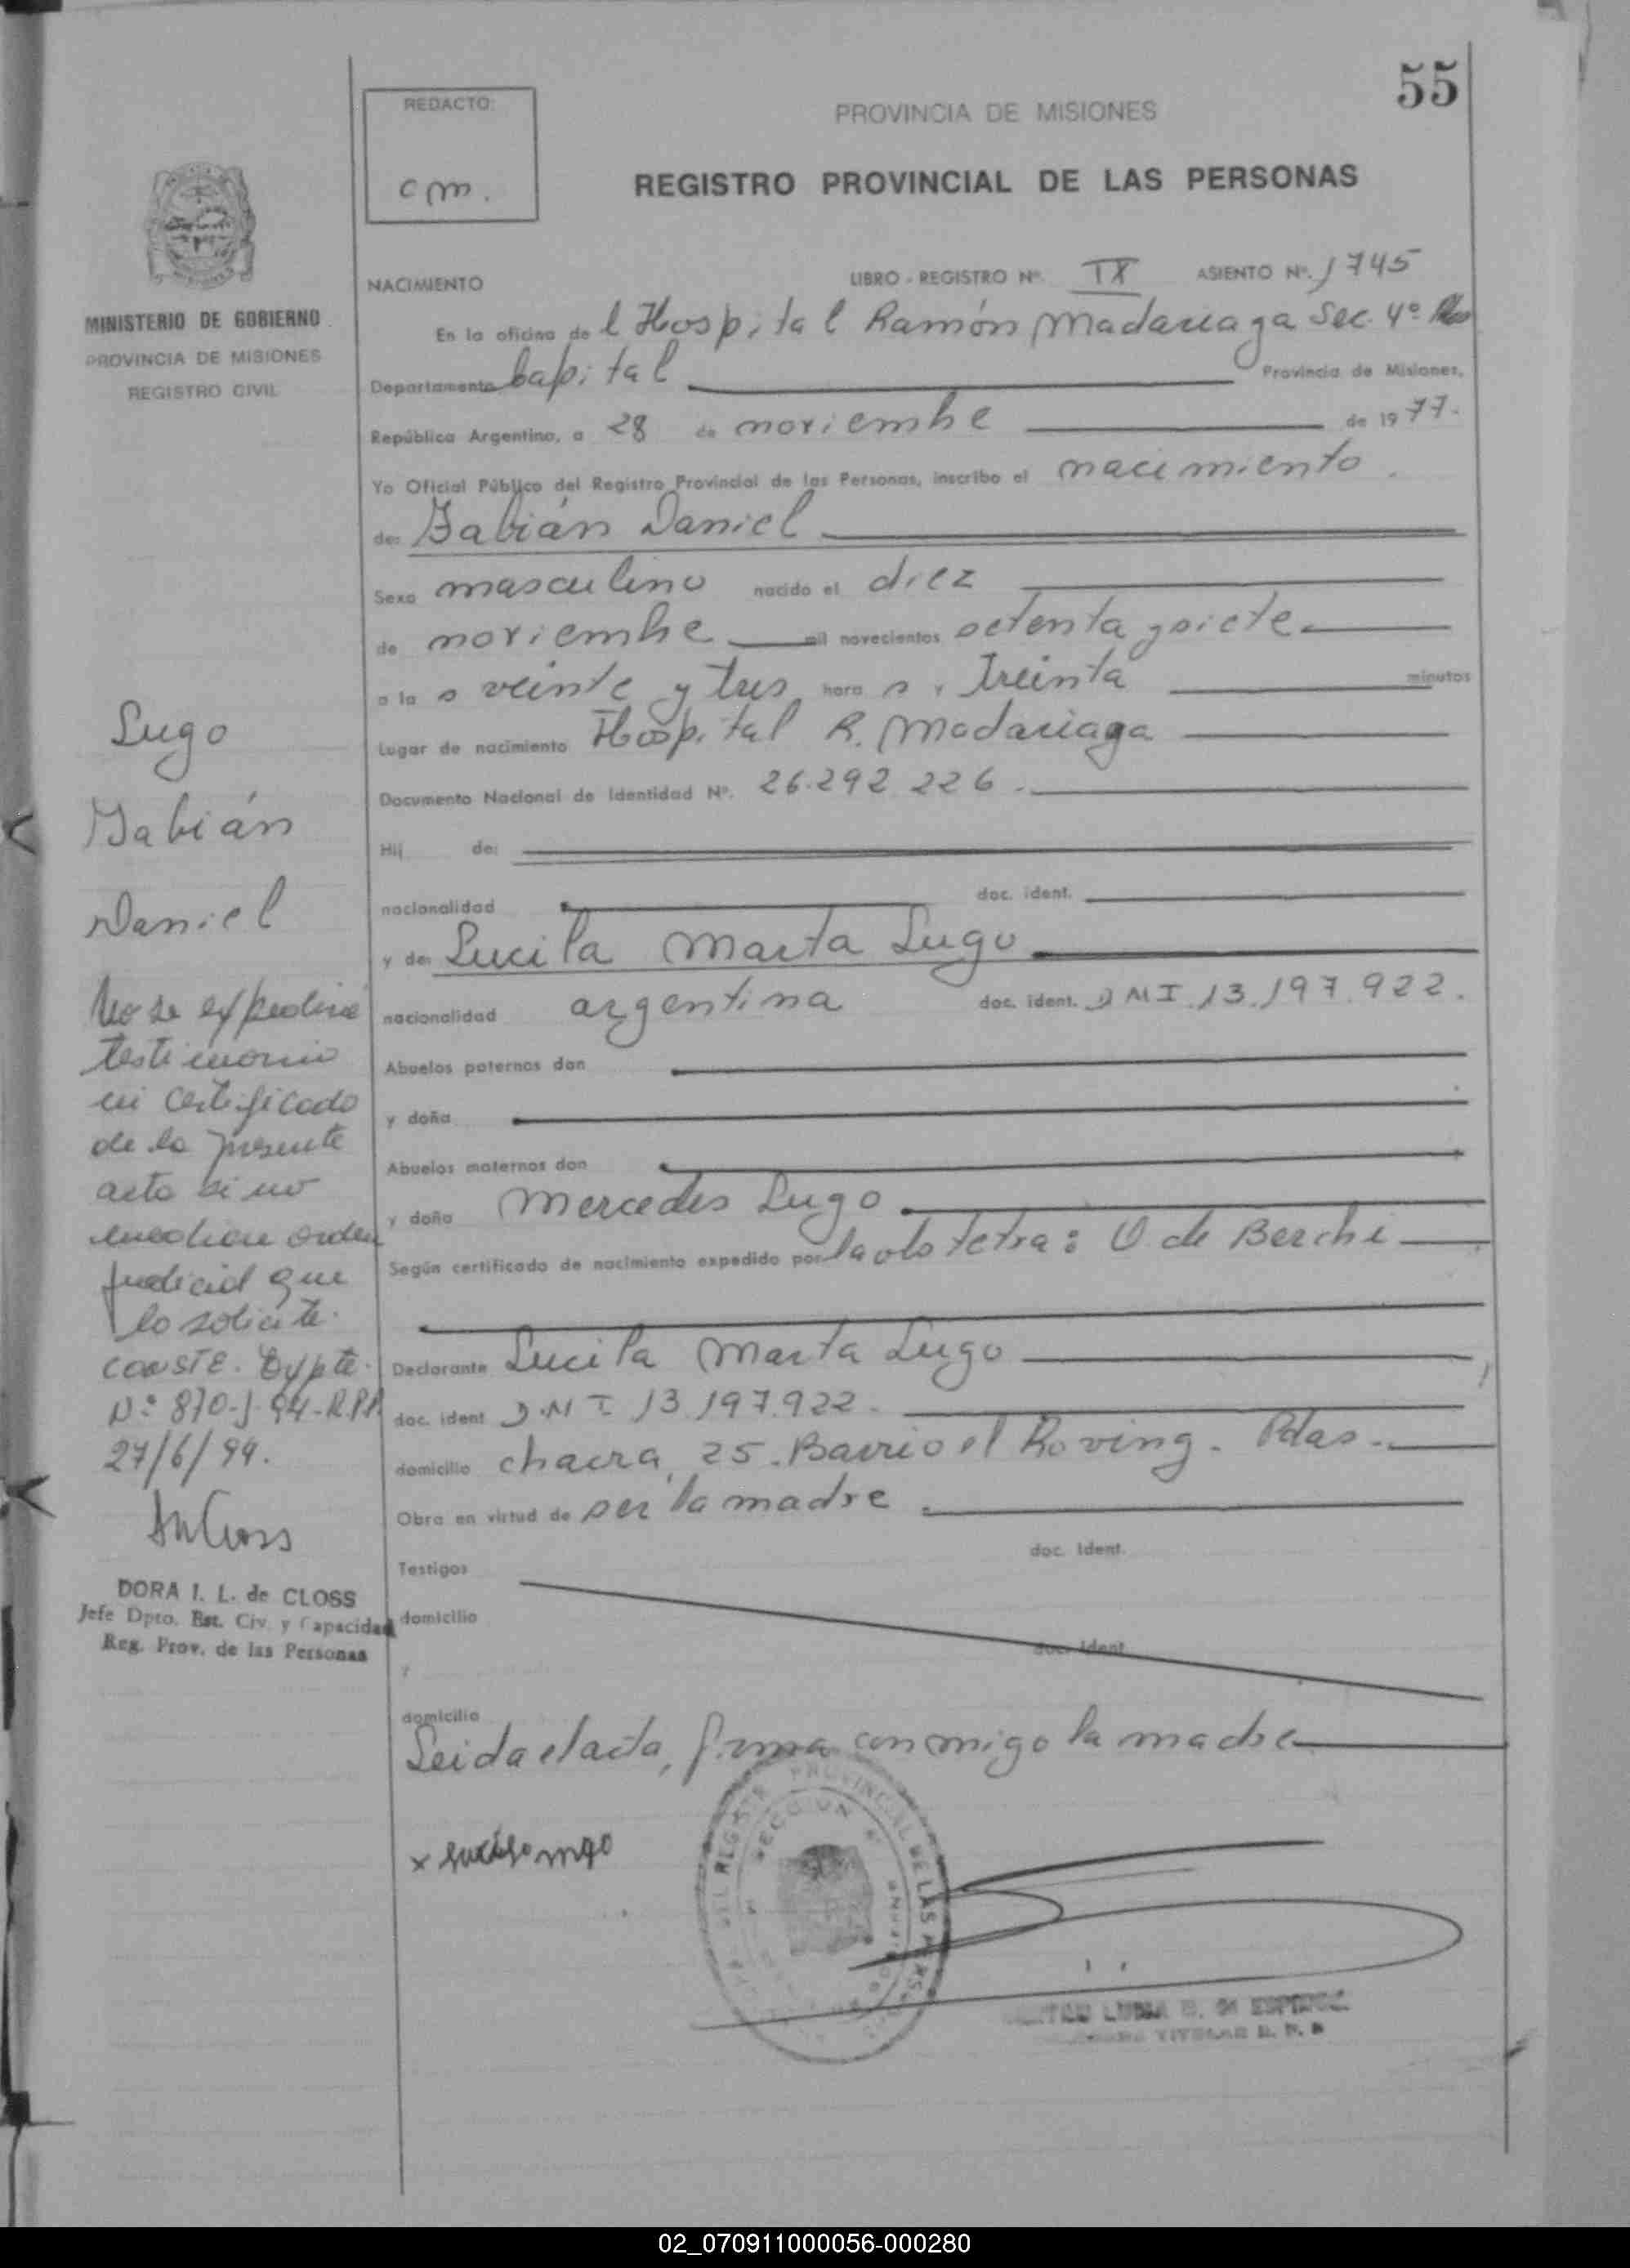 55
REDACTO:
cm.
PROVINCIA DE MISIONES
REGISTRO PROVINCIAL DE LAS PERSONAS
MINISTERIO DE GOBIERNO
PROVINCIA DE MISIONES
REGISTRO CIVIL
NACIMIENTO LIBRO - REGISTRO Nº. IX ASIENTO Nº. 1745
En la oficina de l Hospital Ramón Madariaga Sec. 4º
Departamento Capital Provincia de Misiones,
República Argentina, a 28 de noviembre de 1977.
Yo Oficial Público del Registro Provincial de las Personas, inscribo el nacimiento.
de: Fabián Daniel
Sexo masculino nacido el diez
de noviembre mil novecientos setenta y siete
a la s veinte y tres hora s y treinta minutos
Lugar de nacimiento Hospital R. Madariaga
Documento Nacional de Identidad Nº. 26.292.226.
Hij de:
nacionalidad doc. ident.
y de: Lucila Marta Lugo
nacionalidad argentina doc. ident. DNI.13.197.922.
Abuelos paternos don
y doña
Abuelos maternos don
y doña Mercedes Lugo
Según certificado de nacimiento expedido por la obstetra: O. de Berchi
Declarante Lucila Marta Lugo
doc. ident DNI 13.197.922.
domicilio chacra 25. Barrio el Roving. Pdas.
Obra en virtud de ser la madre
Testigos doc. ident.
domicilio
y doc. ident.
domicilio
Leida el acta, firma conmigo la madre
x
Lugo
Fabián
Daniel
No se expedirá
testimonio
ni certificado
de la presente
acta si no
mediare orden
judicial que
lo solicite.
CONSTE. Expte.
Nº 870-J-94-R.P.P.
27/6/94.
DORA I. L. de CLOSS
Jefe Dpto. Est. Civ. y Capacidad
Reg. Prov. de las Personas
REGISTRO PROVINCIAL DE LAS PERSONAS
SECCION 4º
02_070911000056-000280